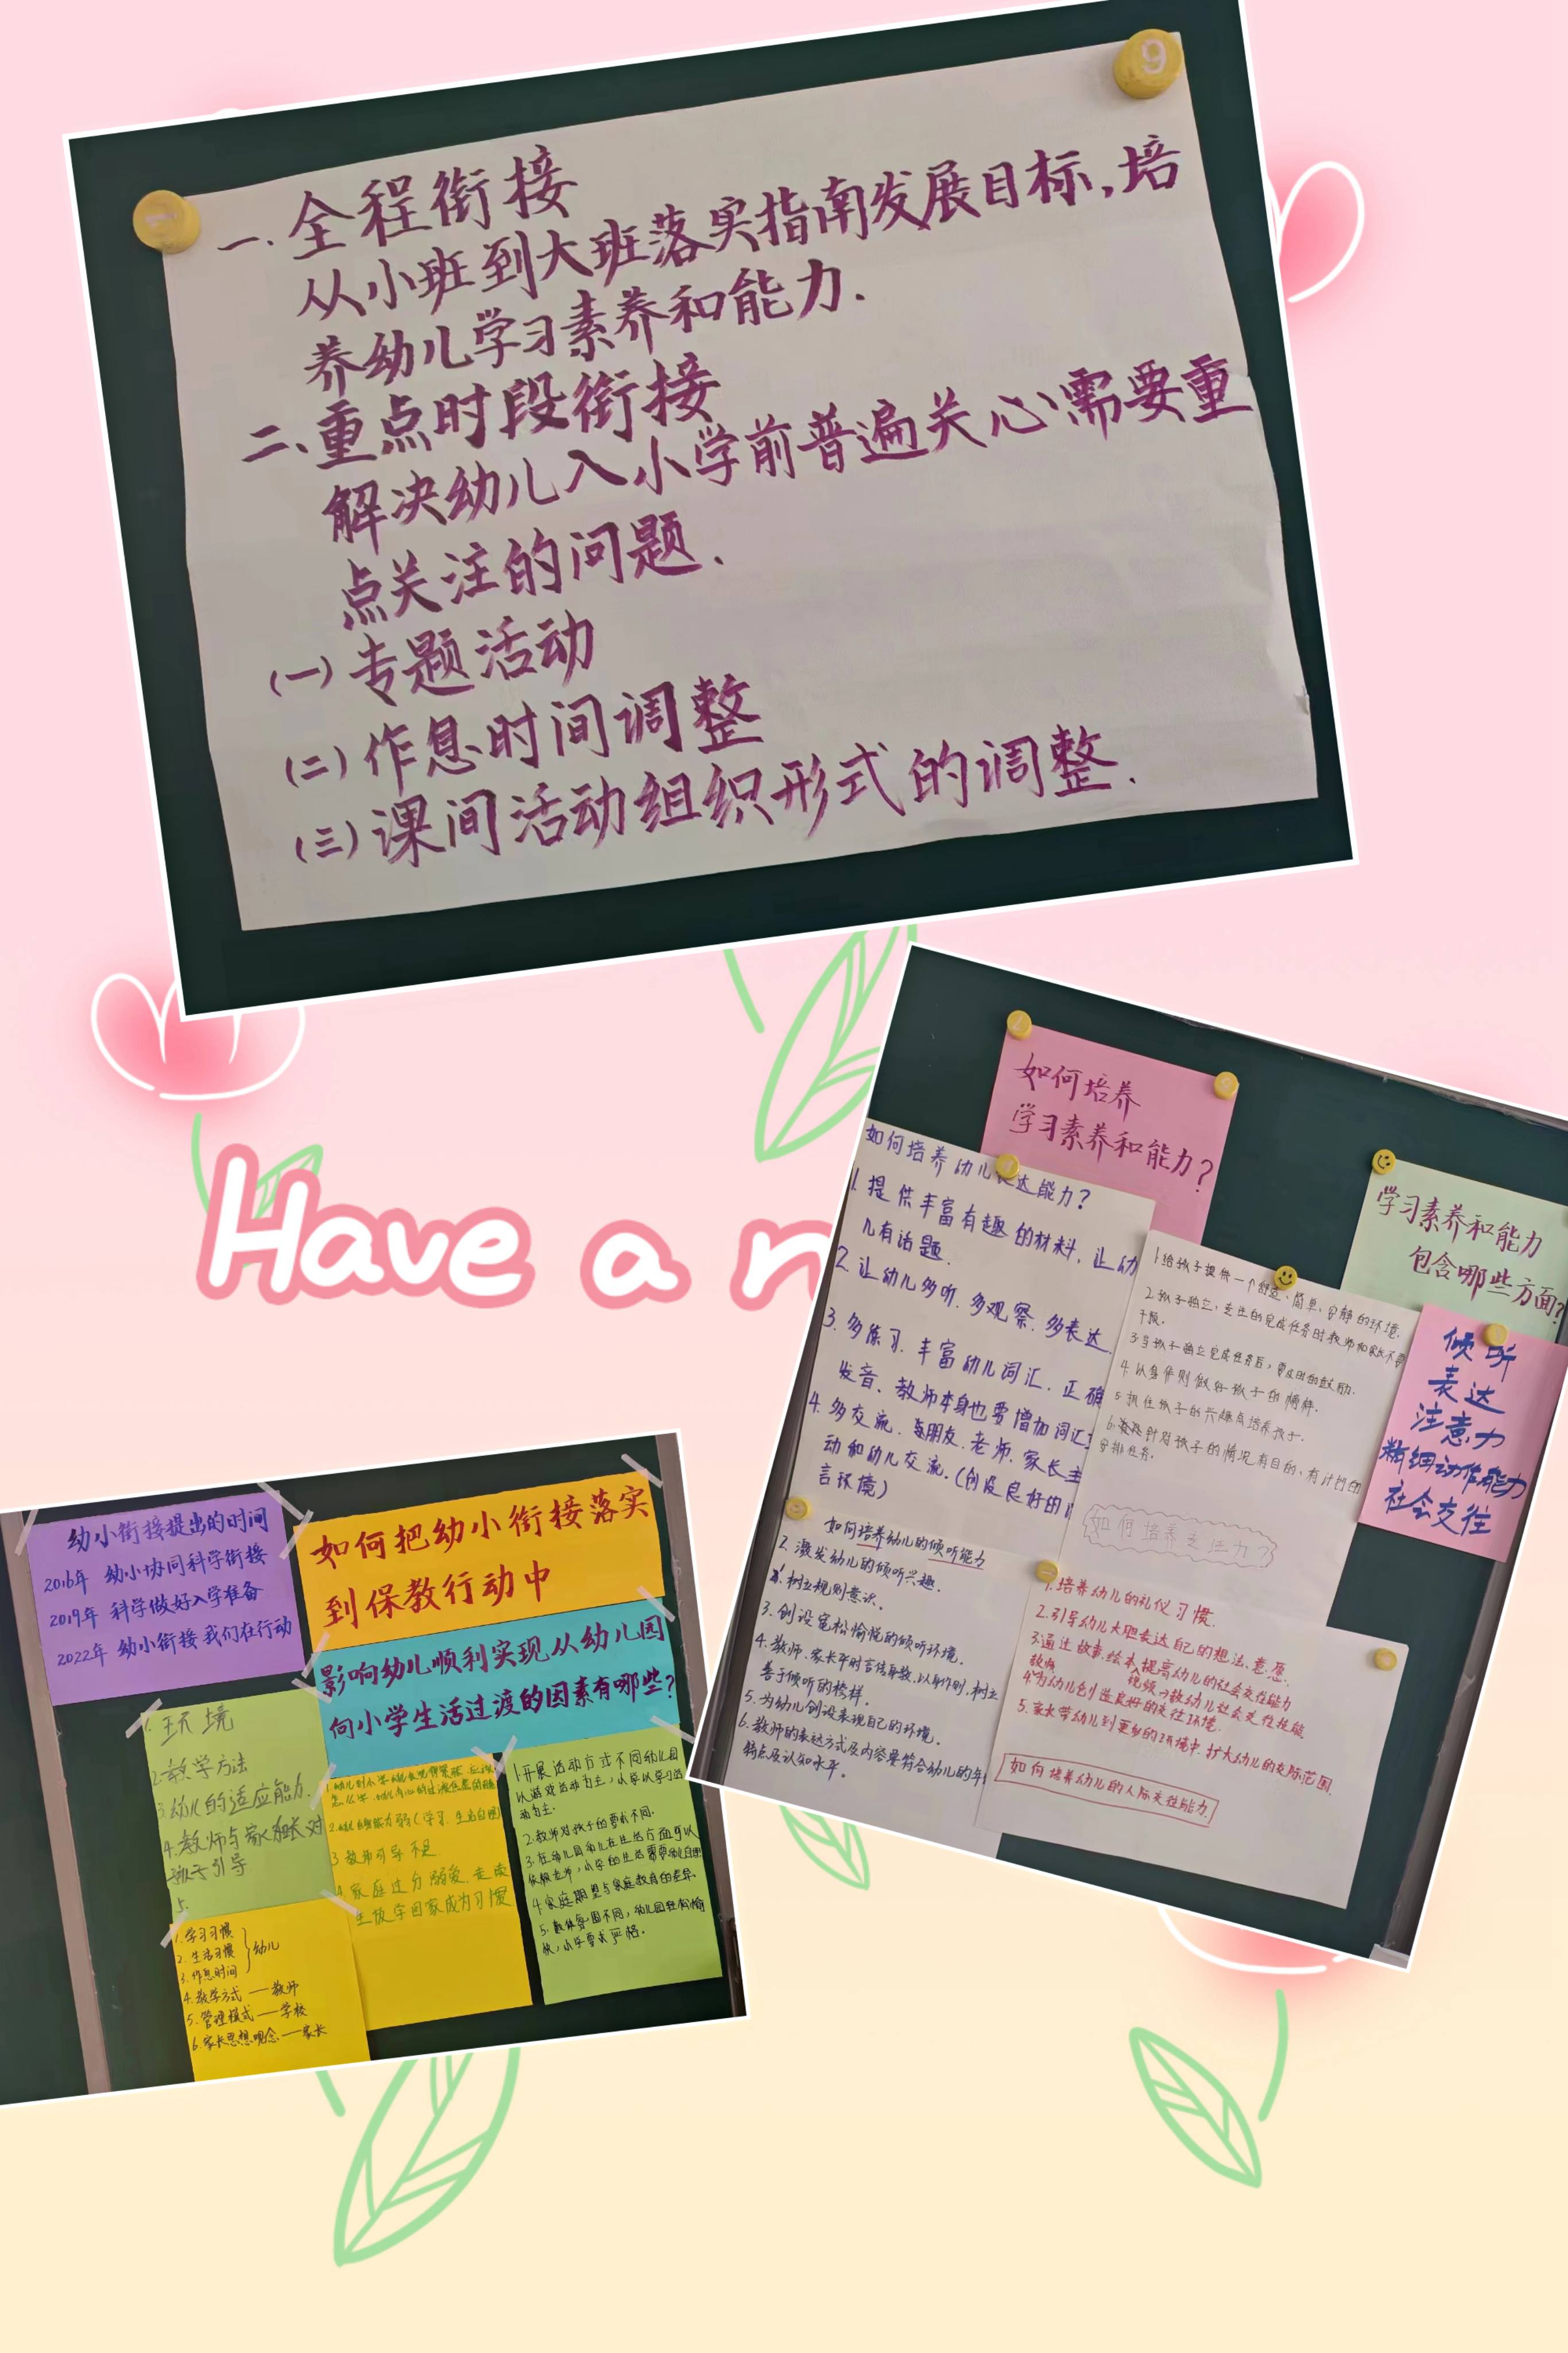 一.全程衔接
从小班到大班落实指南发展目标,培
养幼儿学习素养和能力.
二、重点时段衔接
解决幼儿入小学前普遍关心需要重
点关注的问题.
(一)专题活动
(二)作息时间调整
(三)课间活动组织形式的调整.
Have a n
如何培养
学习素养和能力?
学习素养和能力
包含哪些方面?
倾听
表达
注意力
精细动作能力
社会交往
如何培养幼儿表达能力?
1.提供丰富有趣的材料,让幼
儿有话题.
2.让幼儿多听.多观察.多表达.
3.多练习.丰富幼儿词汇.正确
发音、教师本身也要增加词汇
4.多交流.与朋友.老师.家长主
动和幼儿交流.(创设良好的
言环境)
1.给孩子提供一个舒适、简单、安静的环境.
2.孩子独立,专注的完成任务时教师和家长不要
干预.
3.当孩子独立完成任务后,要及时的鼓励.
4.以身作则做好孩子的榜样.
5.抓住孩子的兴趣点培养孩子.
6.针对孩子的情况有目的、有计划的
安排任务.
如何培养专注力?
如何培养幼儿的倾听能力
2.激发幼儿的倾听兴趣.
树立规则意识.
3.创设宽松愉悦的倾听环境.
4.教师.家长平时言传身教,以身作则,树立
善于倾听的榜样.
5.为幼儿创设表现自己的环境.
6.教师的表达方式及内容要符合幼儿的年
特点及认知水平.
1.培养幼儿的礼仪习惯.
2.引导幼儿大胆表达自己的想法、意愿.
3.通过故事.绘本.视频提高幼儿的社会交往能力
教师→教幼儿社会交往技能
4.为幼儿创造良好的交往环境.
5.家长带幼儿到更多的环境中,扩大幼儿的交际范围.
如何培养幼儿的人际交往能力.
幼小衔接提出的时间
2016年 幼小协同科学衔接
2019年 科学做好入学准备
2022年 幼小衔接我们在行动
如何把幼小衔接落实
到保教行动中
影响幼儿顺利实现从幼儿园
向小学生活过渡的因素有哪些?
1.环境
2.教学方法
3.幼儿的适应能力.
4.教师与家长对
孩子引导
5.
1.学习习惯
2.生活习惯
3.作息时间
幼儿
4.教学方式——教师
5.管理模式——学校
6.家长思想观念——家长
3.教师引导不足
4.家庭过分溺爱.
1.开展活动方式不同幼儿园
以游戏活动为主,小学以学习活
动为主.
2.教师对孩子的要求不同.
3.在幼儿园幼儿在生活方面可以
依赖老师,小学的生活需要幼儿自理
4.家庭期望与家庭教育的差异.
5.教体氛围不同,幼儿园轻松愉
快,小学要求严格.